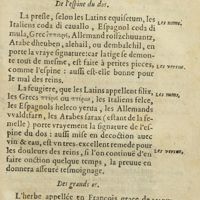 De l'espine du dos.
La presle, selon les Latins equisetum, les
Italiens coda di cauallo, Espagnol coda di
mula, Grec ἵππουρις, Allemand rosschuuantz,
Arabe dheuben, alchail, ou dembalchil, en
porte la vraye signature: car la tige se demon-
tre tout de mesme, est faite à petites pieces,
comme l'espine: aussi est-elle bonne pour
le mal des reins.
La feugiere, que les Latins appellent filix,
les Grecs πτέρις ou πτέρια, les Italiens felce,
les Espagnols heleco yerua, les Allemands
vvaldtfarn, les Arabes farax (estant de la fe-
melle) porte vrayement la signature de l'es-
pine du dos: aussi mise en decoction auec
vin & eau, est vn tres-excellent remede pour
les douleurs des reins, si l'on continuë d'en
faire onction quelque temps, la preuue en
donnera asseuré tesmoignage.
Des grands os.
L'herbe appellée en François grace de
Les noms.
Les vertus.
Les noms.
Les vertus.